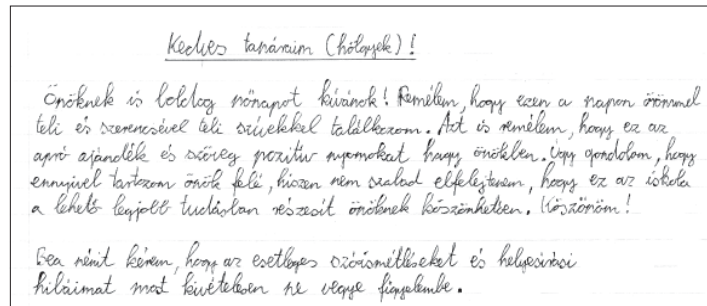 Kedves tanáraim (hölgyek)!
Önöknek is boldog nőnapot kívánok! Remélem, hogy ezen a napon örömmel
teli és szerencsével teli szívekkel találkozom. Azt is remélem, hogy ez az
apró ajándék és szöveg pozitív nyomokat hagy önökben. Úgy gondolom, hogy
ennyivel tartozom önök felé, hiszen nem szabad elfelejtenem, hogy ez az iskola
a lehető legjobb tudásban részesít önöknek köszönhetően. Köszönöm!
Bea nénit kérem, hogy az esetleges szóismétléseket és helyesírási
hibáimat most kivételesen ne vegye figyelembe.